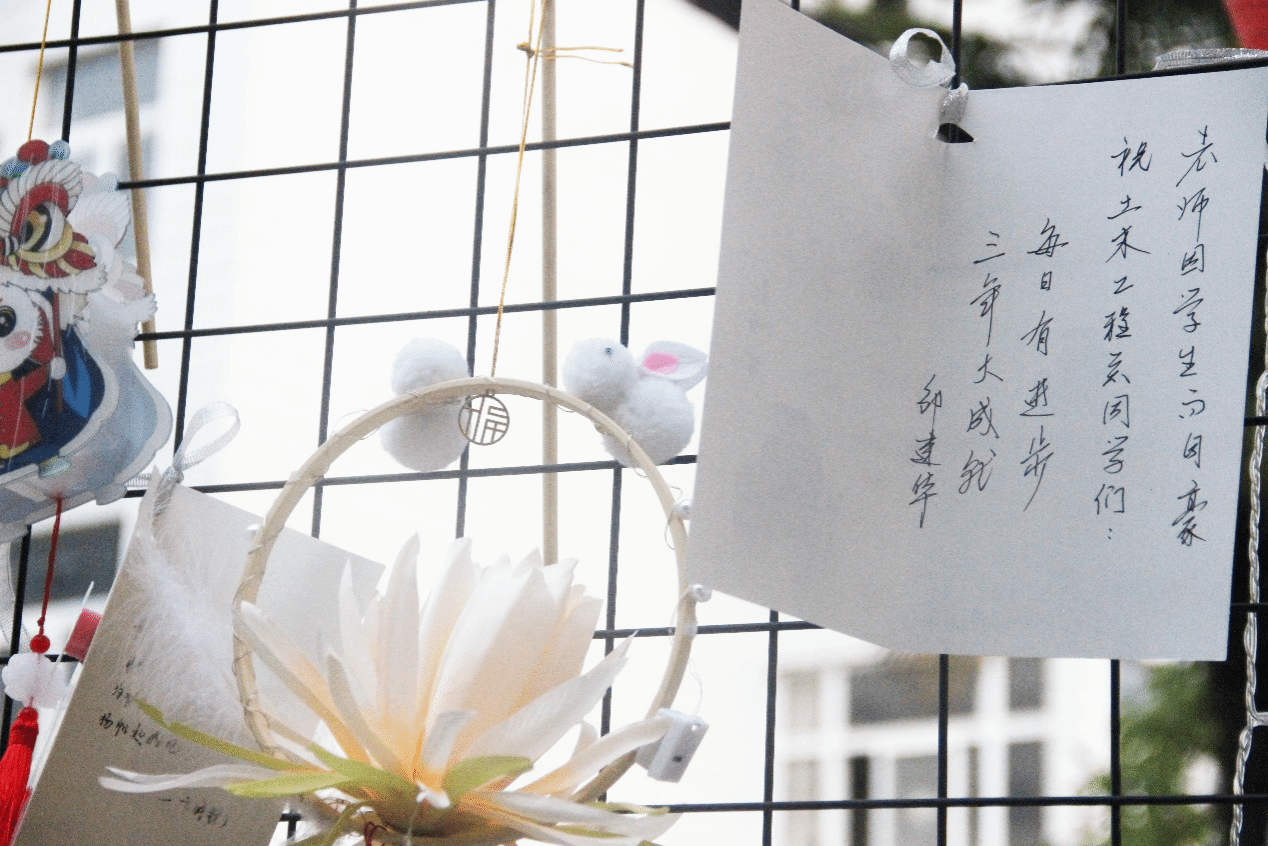 老师因学生而自豪
祝土木工程系同学们：
每日有进步
三年大成就
建华
福
扬帆起航吧